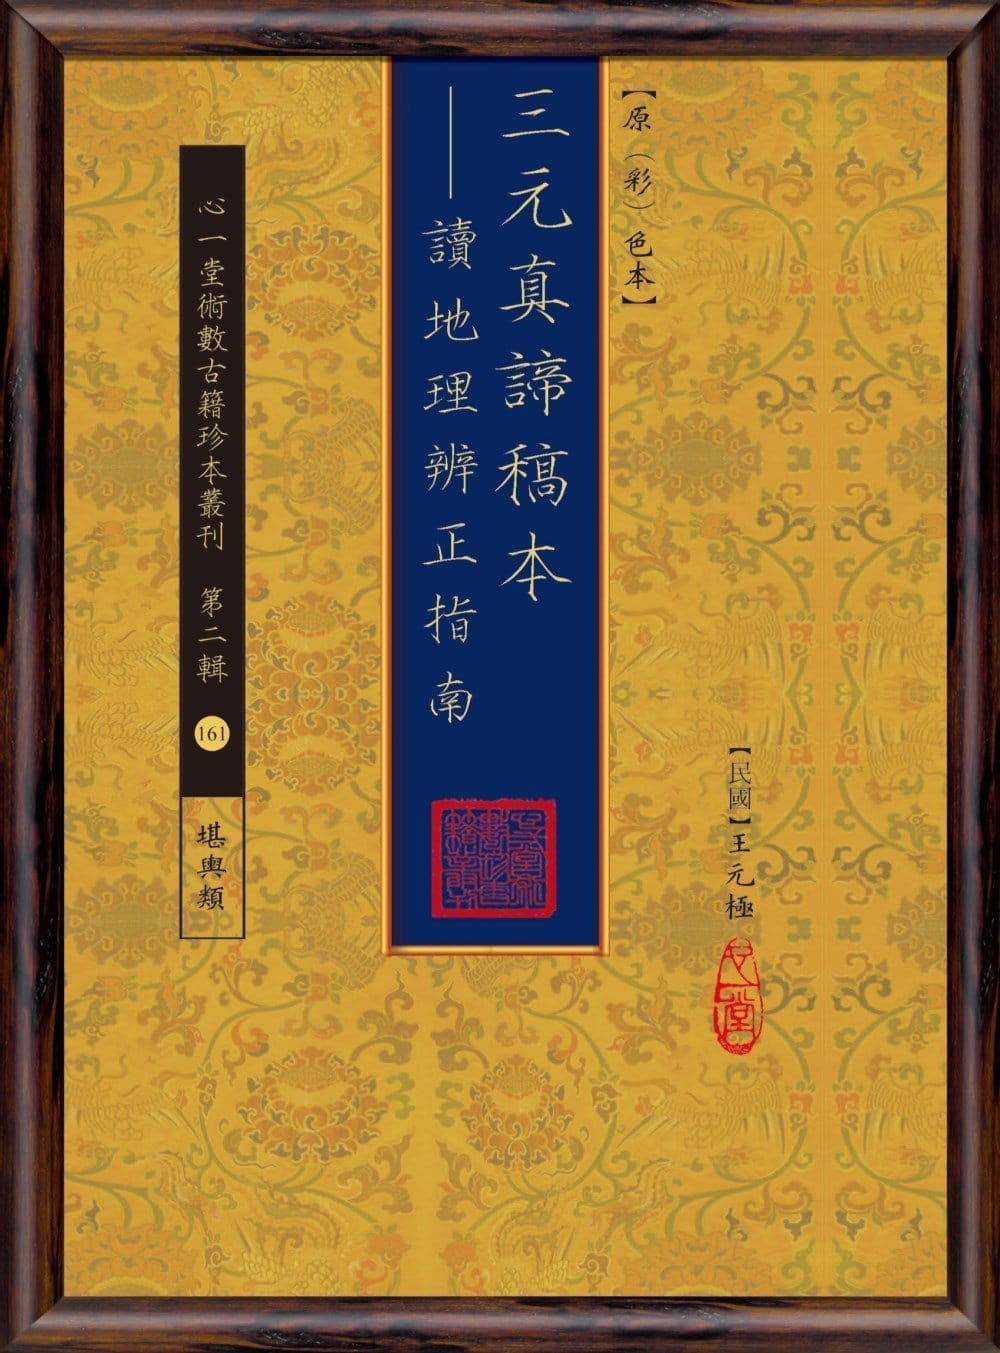 【原（彩）色本】
三元真諦稿本
——讀地理辨正指南
【民國】王元極
心一堂術數古籍珍本叢刊 第二輯 161
堪輿類